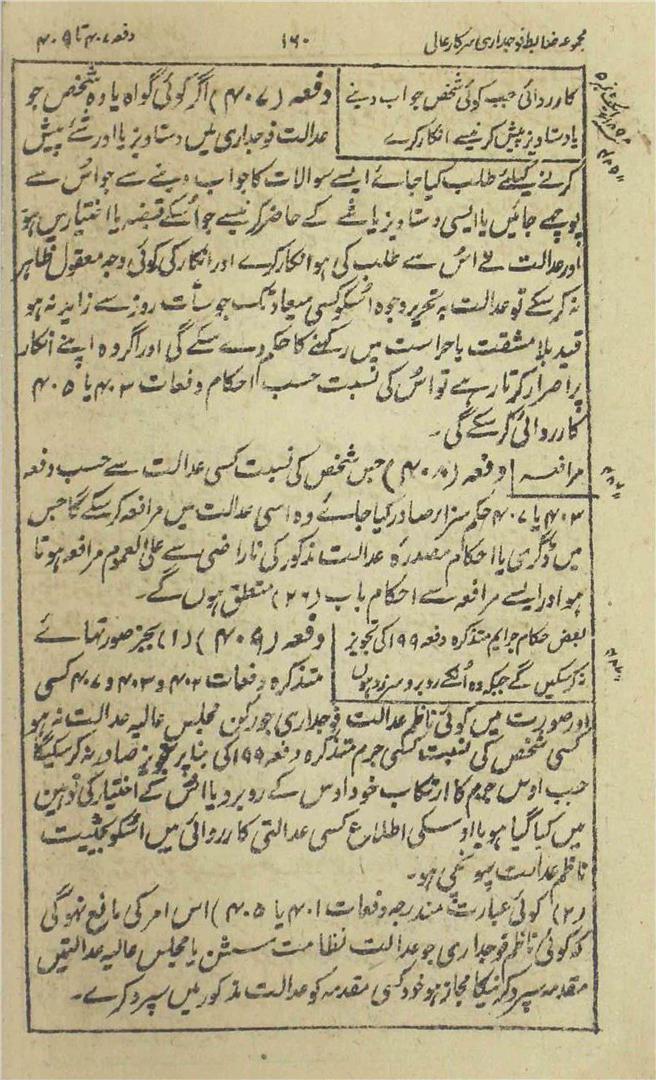 مجموعہ ضابطہ فوجداری سرکار عالی
۱۶۰
دفعہ ۴۰۷ تا ۴۰۹
کارروائی جب کوئی شخص جواب دینے
یا دستاویز پیش کرنیسے انکار کرے
دفعہ (۴۰۷) اگر کوئی گواہ یا وہ شخص جو
عدالت فوجداری میں دستاویز یا اور شے پیش
کرنے کیلئے طلب کیا جائے ایسے سوالات کا جواب دینے سے جو اُس سے
پوچھے جائیں یا ایسی دستاویز یا شے کے حاضر کرنیسے جو اُسکے قبضہ یا اختیار میں ہو
اور عدالت نے اُس سے طلب کی ہو انکار کرے اور انکار کی کوئی وجہ معقول ظاہر
نہ کر سکے تو عدالت بہ تحریر وجوہ اُسکو کسی میعاد تک جو سات روز سے زاید نہ ہو
قید بلا مشقت یا حراست میں رکھنے کا حکم دے سکے گی اور اگر وہ اپنے انکار
پر اصرار کرتا رہے تو اُس کی نسبت حسب احکام دفعات ۴۰۳ یا ۴۰۵
کارروائی کر سکے گی۔
مرافعہ
دفعہ (۴۰۸) جس شخص کی نسبت کسی عدالت سے حسب دفعہ
۴۰۳ یا ۴۰۷ حکم سزا صادر کیا جائے وہ اسی عدالت میں مرافعہ کر سکے گا جس
میں ڈگری یا احکام مصدرہ عدالت مذکور کی ناراضی سے علی العموم مرافعہ ہوتا
ہو اور ایسے مرافعہ سے احکام باب (۲۶) متعلق ہوں گے۔
بعض حکام جرایم متذکرہ دفعہ ۱۹۹ کی تجویز
نہ کر سکیں گے جبکہ وہ اُنکے روبرو سرزد ہوں
دفعہ (۴۰۹) (۱) بجز صورتہائے
متذکرہ دفعات ۴۰۲ و ۴۰۳ و ۴۰۷ کسی
اور صورت میں کوئی ناظم عدالت فوجداری جو رکن مجلس عالیہ عدالت نہ ہو
کسی شخص کی نسبت کسی جرم متذکرہ دفعہ ۱۹۹ کی بنا پر تجویز صادر نہ کر سکیگا
جب اوس جرم کا ارتکاب خود اوس کے روبرو یا اُس کے اختیار کی توہین
میں کیا گیا ہو یا اوسکی اطلاع کسی عدالتی کارروائی میں اُسکو بحثییت
ناظم عدالت پہونچی ہو۔
(۲) کوئی عبارت مندرجہ دفعات ۴۰۱ یا ۴۰۵) اس امر کی مانع نہوگی
کہ کوئی ناظم فوجداری جو عدالت نظامت سشن یا مجلس عالیہ عدالتیں
مقدمہ سپرد کرنیکا مجاز ہو خود کسی مقدمہ کو عدالت مذکور میں سپرد کرے۔